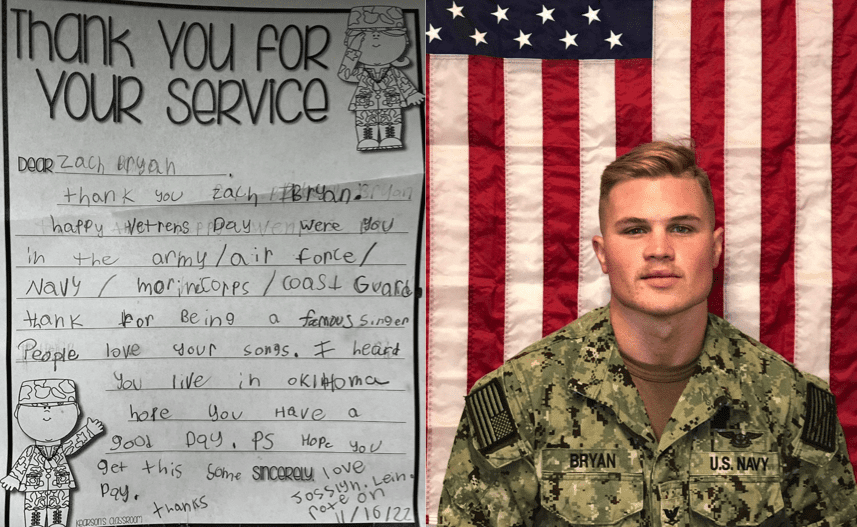 Thank you for
your service
Dear Zach Bryan.
thank you zach Bryan.
happy Vetrens Day were you
in the army/air force/
Navy / marinecorps / coast Guard
thank for Being a famous singer
People love your songs. I heard
you live in oklhoma
hope you Have a
good Day. PS Hope you
get this some sincerely love
Day. Josslyn.
thanks rote on
11/16/22
BRYAN
U.S. NAVY